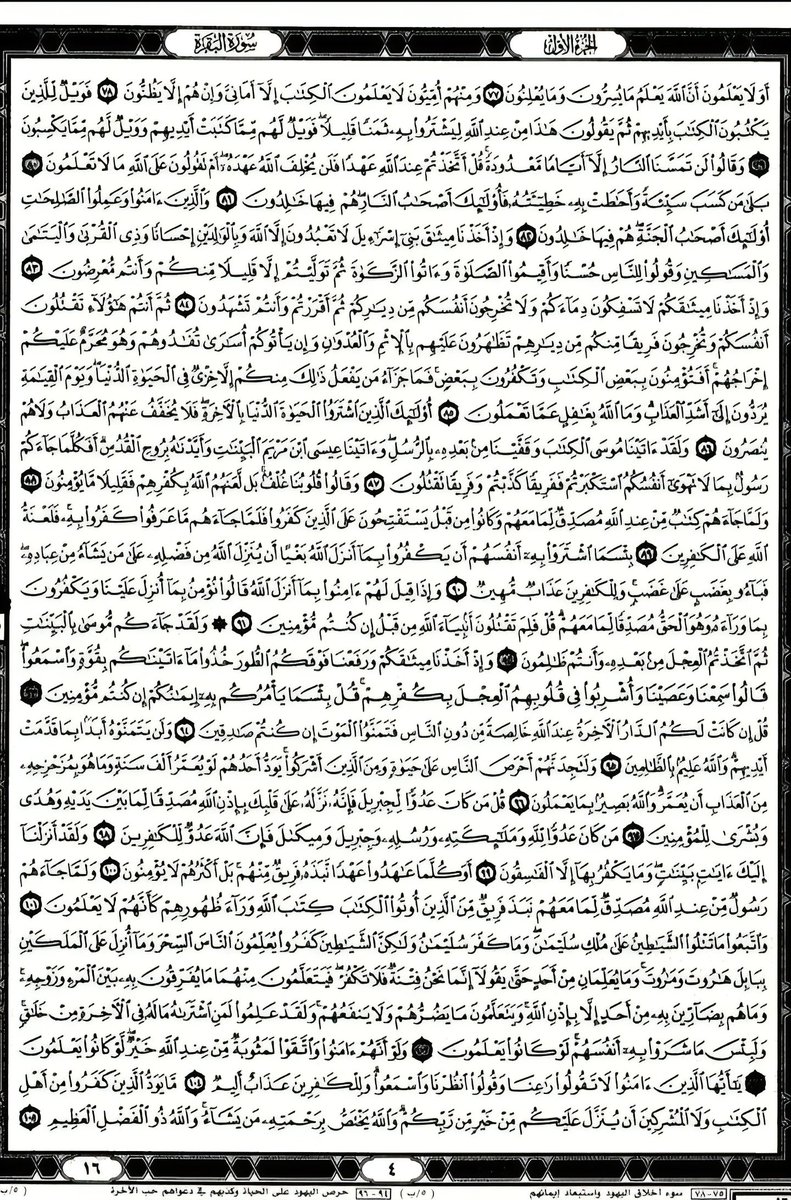 الجزء الأول
سورة البقرة
أَوَلَا يَعْلَمُونَ أَنَّ ٱللَّهَ يَعْلَمُ مَا يُسِرُّونَ وَمَا يُعْلِنُونَ ٧٧ وَمِنْهُمْ أُمِّيُّونَ لَا يَعْلَمُونَ ٱلْكِتَٰبَ إِلَّآ أَمَانِىَّ وَإِنْ هُمْ إِلَّا يَظُنُّونَ ٧٨ فَوَيْلٌ لِّلَّذِينَ
يَكْتُبُونَ ٱلْكِتَٰبَ بِأَيْدِيهِمْ ثُمَّ يَقُولُونَ هَٰذَا مِنْ عِندِ ٱللَّهِ لِيَشْتَرُوا۟ بِهِۦ ثَمَنًا قَلِيلًا ۖ فَوَيْلٌ لَّهُم مِّمَّا كَتَبَتْ أَيْدِيهِمْ وَوَيْلٌ لَّهُم مِّمَّا يَكْسِبُونَ
٧٩ وَقَالُوا۟ لَن تَمَسَّنَا ٱلنَّارُ إِلَّآ أَيَّامًا مَّعْدُودَةً ۚ قُلْ أَتَّخَذْتُمْ عِندَ ٱللَّهِ عَهْدًا فَلَن يُخْلِفَ ٱللَّهُ عَهْدَهُۥٓ ۖ أَمْ تَقُولُونَ عَلَى ٱللَّهِ مَا لَا تَعْلَمُونَ ٨٠
بَلَىٰ مَن كَسَبَ سَيِّئَةً وَأَحَٰطَتْ بِهِۦ خَطِيٓـَٔتُهُۥ فَأُو۟لَٰٓئِكَ أَصْحَٰبُ ٱلنَّارِ ۖ هُمْ فِيهَا خَٰلِدُونَ ٨١ وَٱلَّذِينَ ءَامَنُوا۟ وَعَمِلُوا۟ ٱلصَّٰلِحَٰتِ
أُو۟لَٰٓئِكَ أَصْحَٰبُ ٱلْجَنَّةِ ۖ هُمْ فِيهَا خَٰلِدُونَ ٨٢ وَإِذْ أَخَذْنَا مِيثَٰقَ بَنِىٓ إِسْرَٰٓءِيلَ لَا تَعْبُدُونَ إِلَّا ٱللَّهَ وَبِٱلْوَٰلِدَيْنِ إِحْسَانًا وَذِى ٱلْقُرْبَىٰ وَٱلْيَتَٰمَىٰ
وَٱلْمَسَٰكِينِ وَقُولُوا۟ لِلنَّاسِ حُسْنًا وَأَقِيمُوا۟ ٱلصَّلَوٰةَ وَءَاتُوا۟ ٱلزَّكَوٰةَ ثُمَّ تَوَلَّيْتُمْ إِلَّا قَلِيلًا مِّنكُمْ وَأَنتُم مُّعْرِضُونَ ٨٣
وَإِذْ أَخَذْنَا مِيثَٰقَكُمْ لَا تَسْفِكُونَ دِمَآءَكُمْ وَلَا تُخْرِجُونَ أَنفُسَكُم مِّن دِيَٰرِكُمْ ثُمَّ أَقْرَرْتُمْ وَأَنتُمْ تَشْهَدُونَ ٨٤ ثُمَّ أَنتُمْ هَٰٓؤُلَآءِ تَقْتُلُونَ
أَنفُسَكُمْ وَتُخْرِجُونَ فَرِيقًا مِّنكُم مِّن دِيَٰرِهِمْ تَظَٰهَرُونَ عَلَيْهِم بِٱلْإِثْمِ وَٱلْعُدْوَٰنِ وَإِن يَأْتُوكُمْ أُسَٰرَىٰ تُفَٰدُوهُمْ وَهُوَ مُحَرَّمٌ عَلَيْكُمْ
إِخْرَاجُهُمْ ۚ أَفَتُؤْمِنُونَ بِبَعْضِ ٱلْكِتَٰبِ وَتَكْفُرُونَ بِبَعْضٍ ۚ فَمَا جَزَآءُ مَن يَفْعَلُ ذَٰلِكَ مِنكُمْ إِلَّا خِزْىٌ فِى ٱلْحَيَوٰةِ ٱلدُّنْيَا ۖ وَيَوْمَ ٱلْقِيَٰمَةِ
يُرَدُّونَ إِلَىٰٓ أَشَدِّ ٱلْعَذَابِ ۗ وَمَا ٱللَّهُ بِغَٰفِلٍ عَمَّا تَعْمَلُونَ ٨٥ أُو۟لَٰٓئِكَ ٱلَّذِينَ ٱشْتَرَوُا۟ ٱلْحَيَوٰةَ ٱلدُّنْيَا بِٱلْءَاخِرَةِ ۖ فَلَا يُخَفَّفُ عَنْهُمُ ٱلْعَذَابُ وَلَا هُمْ
يُنصَرُونَ ٨٦ وَلَقَدْ ءَاتَيْنَا مُوسَى ٱلْكِتَٰبَ وَقَفَّيْنَا مِنۢ بَعْدِهِۦ بِٱلرُّسُلِ ۖ وَءَاتَيْنَا عِيسَى ٱبْنَ مَرْيَمَ ٱلْبَيِّنَٰتِ وَأَيَّدْنَٰهُ بِرُوحِ ٱلْقُدُسِ ۗ أَفَكُلَّمَا جَآءَكُمْ
رَسُولٌۢ بِمَا لَا تَهْوَىٰٓ أَنفُسُكُمُ ٱسْتَكْبَرْتُمْ فَفَرِيقًا كَذَّبْتُمْ وَفَرِيقًا تَقْتُلُونَ ٨٧ وَقَالُوا۟ قُلُوبُنَا غُلْفٌۢ ۚ بَل لَّعَنَهُمُ ٱللَّهُ بِكُفْرِهِمْ فَقَلِيلًا مَّا يُؤْمِنُونَ ٨٨
وَلَمَّا جَآءَهُمْ كِتَٰبٌ مِّنْ عِندِ ٱللَّهِ مُصَدِّقٌ لِّمَا مَعَهُمْ وَكَانُوا۟ مِن قَبْلُ يَسْتَفْتِحُونَ عَلَى ٱلَّذِينَ كَفَرُوا۟ فَلَمَّا جَآءَهُم مَّا عَرَفُوا۟ كَفَرُوا۟ بِهِۦ ۚ فَلَعْنَةُ
ٱللَّهِ عَلَى ٱلْكَٰفِرِينَ ٨٩ بِئْسَمَا ٱشْتَرَوْا۟ بِهِۦٓ أَنفُسَهُمْ أَن يَكْفُرُوا۟ بِمَآ أَنزَلَ ٱللَّهُ بَغْيًا أَن يُنَزِّلَ ٱللَّهُ مِن فَضْلِهِۦ عَلَىٰ مَن يَشَآءُ مِنْ عِبَادِهِۦ ۖ
فَبَآءُو بِغَضَبٍ عَلَىٰ غَضَبٍ ۚ وَلِلْكَٰفِرِينَ عَذَابٌ مُّهِينٌ ٩٠ وَإِذَا قِيلَ لَهُمْ ءَامِنُوا۟ بِمَآ أَنزَلَ ٱللَّهُ قَالُوا۟ نُؤْمِنُ بِمَآ أُنزِلَ عَلَيْنَا وَيَكْفُرُونَ
بِمَا وَرَآءَهُۥ وَهُوَ ٱلْحَقُّ مُصَدِّقًا لِّمَا مَعَهُمْ ۗ قُلْ فَلِمَ تَقْتُلُونَ أَنۢبِيَآءَ ٱللَّهِ مِن قَبْلُ إِن كُنتُم مُّؤْمِنِينَ ٩١ ۞ وَلَقَدْ جَآءَكُم مُّوسَىٰ بِٱلْبَيِّنَٰتِ
ثُمَّ ٱتَّخَذْتُمُ ٱلْعِجْلَ مِنۢ بَعْدِهِۦ وَأَنتُمْ ظَٰلِمُونَ ٩٢ وَإِذْ أَخَذْنَا مِيثَٰقَكُمْ وَرَفَعْنَا فَوْقَكُمُ ٱلطُّورَ خُذُوا۟ مَآ ءَاتَيْنَٰكُم بِقُوَّةٍ وَٱسْمَعُوا۟ ۖ
قَالُوا۟ سَمِعْنَا وَعَصَيْنَا وَأُشْرِبُوا۟ فِى قُلُوبِهِمُ ٱلْعِجْلَ بِكُفْرِهِمْ ۚ قُلْ بِئْسَمَا يَأْمُرُكُم بِهِۦٓ إِيمَٰنُكُمْ إِن كُنتُم مُّؤْمِنِينَ ٩٣
قُلْ إِن كَانَتْ لَكُمُ ٱلدَّارُ ٱلْءَاخِرَةُ عِندَ ٱللَّهِ خَالِصَةً مِّن دُونِ ٱلنَّاسِ فَتَمَنَّوُا۟ ٱلْمَوْتَ إِن كُنتُمْ صَٰدِقِينَ ٩٤ وَلَن يَتَمَنَّوْهُ أَبَدًۢا بِمَا قَدَّمَتْ
أَيْدِيهِمْ ۗ وَٱللَّهُ عَلِيمٌۢ بِٱلظَّٰلِمِينَ ٩٥ وَلَتَجِدَنَّهُمْ أَحْرَصَ ٱلنَّاسِ عَلَىٰ حَيَوٰةٍ وَمِنَ ٱلَّذِينَ أَشْرَكُوا۟ ۚ يَوَدُّ أَحَدُهُمْ لَوْ يُعَمَّرُ أَلْفَ سَنَةٍ وَمَا هُوَ بِمُزَحْزِحِهِۦ
مِنَ ٱلْعَذَابِ أَن يُعَمَّرَ ۗ وَٱللَّهُ بَصِيرٌۢ بِمَا يَعْمَلُونَ ٩٦ قُلْ مَن كَانَ عَدُوًّا لِّجِبْرِيلَ فَإِنَّهُۥ نَزَّلَهُۥ عَلَىٰ قَلْبِكَ بِإِذْنِ ٱللَّهِ مُصَدِّقًا لِّمَا بَيْنَ يَدَيْهِ وَهُدًى
وَبُشْرَىٰ لِلْمُؤْمِنِينَ ٩٧ مَن كَانَ عَدُوًّا لِّلَّهِ وَمَلَٰٓئِكَتِهِۦ وَرُسُلِهِۦ وَجِبْرِيلَ وَمِيكَىٰلَ فَإِنَّ ٱللَّهَ عَدُوٌّ لِّلْكَٰفِرِينَ ٩٨ وَلَقَدْ أَنزَلْنَآ
إِلَيْكَ ءَايَٰتٍۭ بَيِّنَٰتٍ ۖ وَمَا يَكْفُرُ بِهَآ إِلَّا ٱلْفَٰسِقُونَ ٩٩ أَوَكُلَّمَا عَٰهَدُوا۟ عَهْدًا نَّبَذَهُۥ فَرِيقٌ مِّنْهُم ۚ بَلْ أَكْثَرُهُمْ لَا يُؤْمِنُونَ ١٠٠ وَلَمَّا جَآءَهُمْ
رَسُولٌ مِّنْ عِندِ ٱللَّهِ مُصَدِّقٌ لِّمَا مَعَهُمْ نَبَذَ فَرِيقٌ مِّنَ ٱلَّذِينَ أُوتُوا۟ ٱلْكِتَٰبَ كِتَٰبَ ٱللَّهِ وَرَآءَ ظُهُورِهِمْ كَأَنَّهُمْ لَا يَعْلَمُونَ ١٠١
وَٱتَّبَعُوا۟ مَا تَتْلُوا۟ ٱلشَّيَٰطِينُ عَلَىٰ مُلْكِ سُلَيْمَٰنَ ۖ وَمَا كَفَرَ سُلَيْمَٰنُ وَلَٰكِنَّ ٱلشَّيَٰطِينَ كَفَرُوا۟ يُعَلِّمُونَ ٱلنَّاسَ ٱلسِّحْرَ وَمَآ أُنزِلَ عَلَى ٱلْمَلَكَيْنِ
بِبَابِلَ هَٰرُوتَ وَمَٰرُوتَ ۚ وَمَا يُعَلِّمَانِ مِنْ أَحَدٍ حَتَّىٰ يَقُولَآ إِنَّمَا نَحْنُ فِتْنَةٌ فَلَا تَكْفُرْ ۖ فَيَتَعَلَّمُونَ مِنْهُمَا مَا يُفَرِّقُونَ بِهِۦ بَيْنَ ٱلْمَرْءِ وَزَوْجِهِۦ ۚ
وَمَا هُم بِضَآرِّينَ بِهِۦ مِنْ أَحَدٍ إِلَّا بِإِذْنِ ٱللَّهِ ۚ وَيَتَعَلَّمُونَ مَا يَضُرُّهُمْ وَلَا يَنفَعُهُمْ ۚ وَلَقَدْ عَلِمُوا۟ لَمَنِ ٱشْتَرَىٰهُ مَا لَهُۥ فِى ٱلْءَاخِرَةِ مِنْ خَلَٰقٍ ۚ
وَلَبِئْسَ مَا شَرَوْا۟ بِهِۦٓ أَنفُسَهُمْ ۚ لَوْ كَانُوا۟ يَعْلَمُونَ ١٠٢ وَلَوْ أَنَّهُمْ ءَامَنُوا۟ وَٱتَّقَوْا۟ لَمَثُوبَةٌ مِّنْ عِندِ ٱللَّهِ خَيْرٌ ۖ لَّوْ كَانُوا۟ يَعْلَمُونَ
١٠٣ يَٰٓأَيُّهَا ٱلَّذِينَ ءَامَنُوا۟ لَا تَقُولُوا۟ رَٰعِنَا وَقُولُوا۟ ٱنظُرْنَا وَٱسْمَعُوا۟ ۗ وَلِلْكَٰفِرِينَ عَذَابٌ أَلِيمٌ ١٠٤ مَّا يَوَدُّ ٱلَّذِينَ كَفَرُوا۟ مِنْ أَهْلِ
ٱلْكِتَٰبِ وَلَا ٱلْمُشْرِكِينَ أَن يُنَزَّلَ عَلَيْكُم مِّنْ خَيْرٍ مِّن رَّبِّكُمْ ۗ وَٱللَّهُ يَخْتَصُّ بِرَحْمَتِهِۦ مَن يَشَآءُ ۚ وَٱللَّهُ ذُو ٱلْفَضْلِ ٱلْعَظِيمِ ١٠٥
٤
١٦
٧٥-٧٨ سوء أخلاق اليهود واستبعاد إيمانهم (٥/ب) ٩٤-٩٦ حرص اليهود على الحياة وكذبهم في دعواهم حب الآخرة (٥/ب